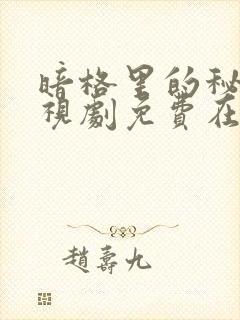 暗格里的秘
视劇免費在
趙壽九